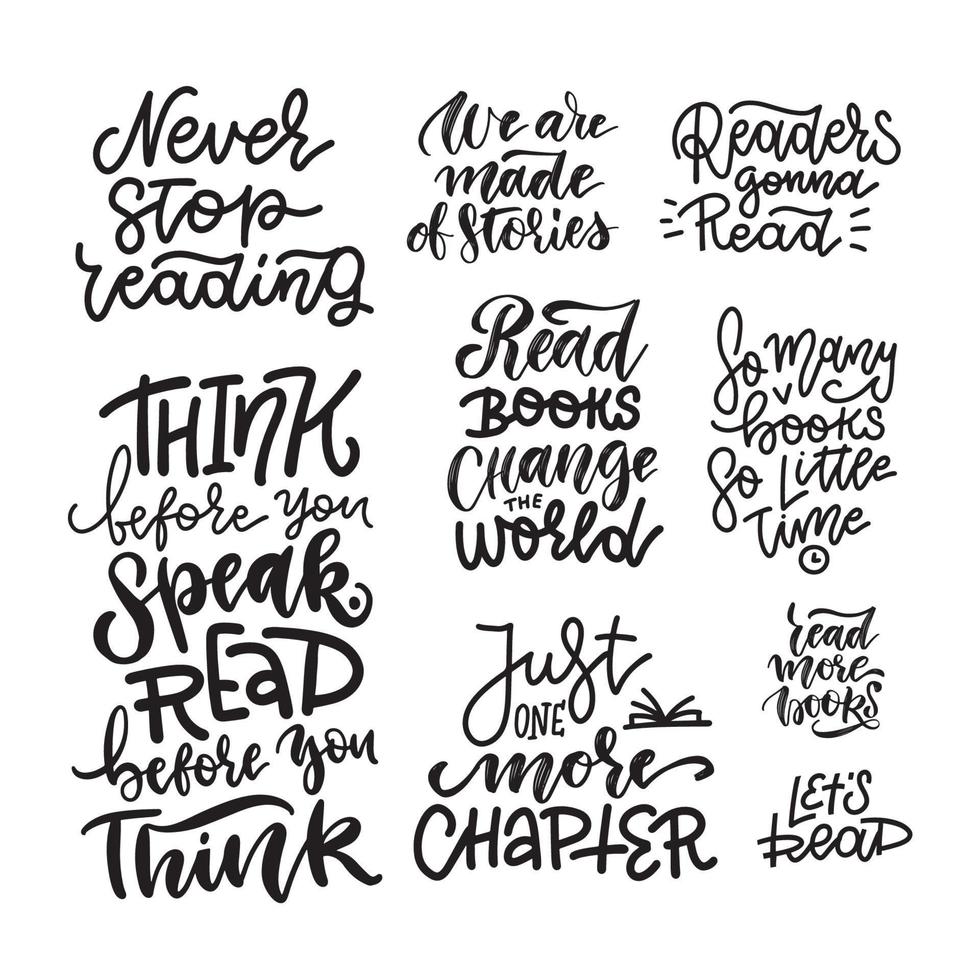 Never
stop
reading
We are
made
of stories
Readers
gonna
Read
THINK
before you
speak.
READ
before you
Think
Read
BOOKS
Change
THE
World
So many
books
So Little
Time
Just
ONE
more
CHAPTER
read
more
books
LET'S
READ